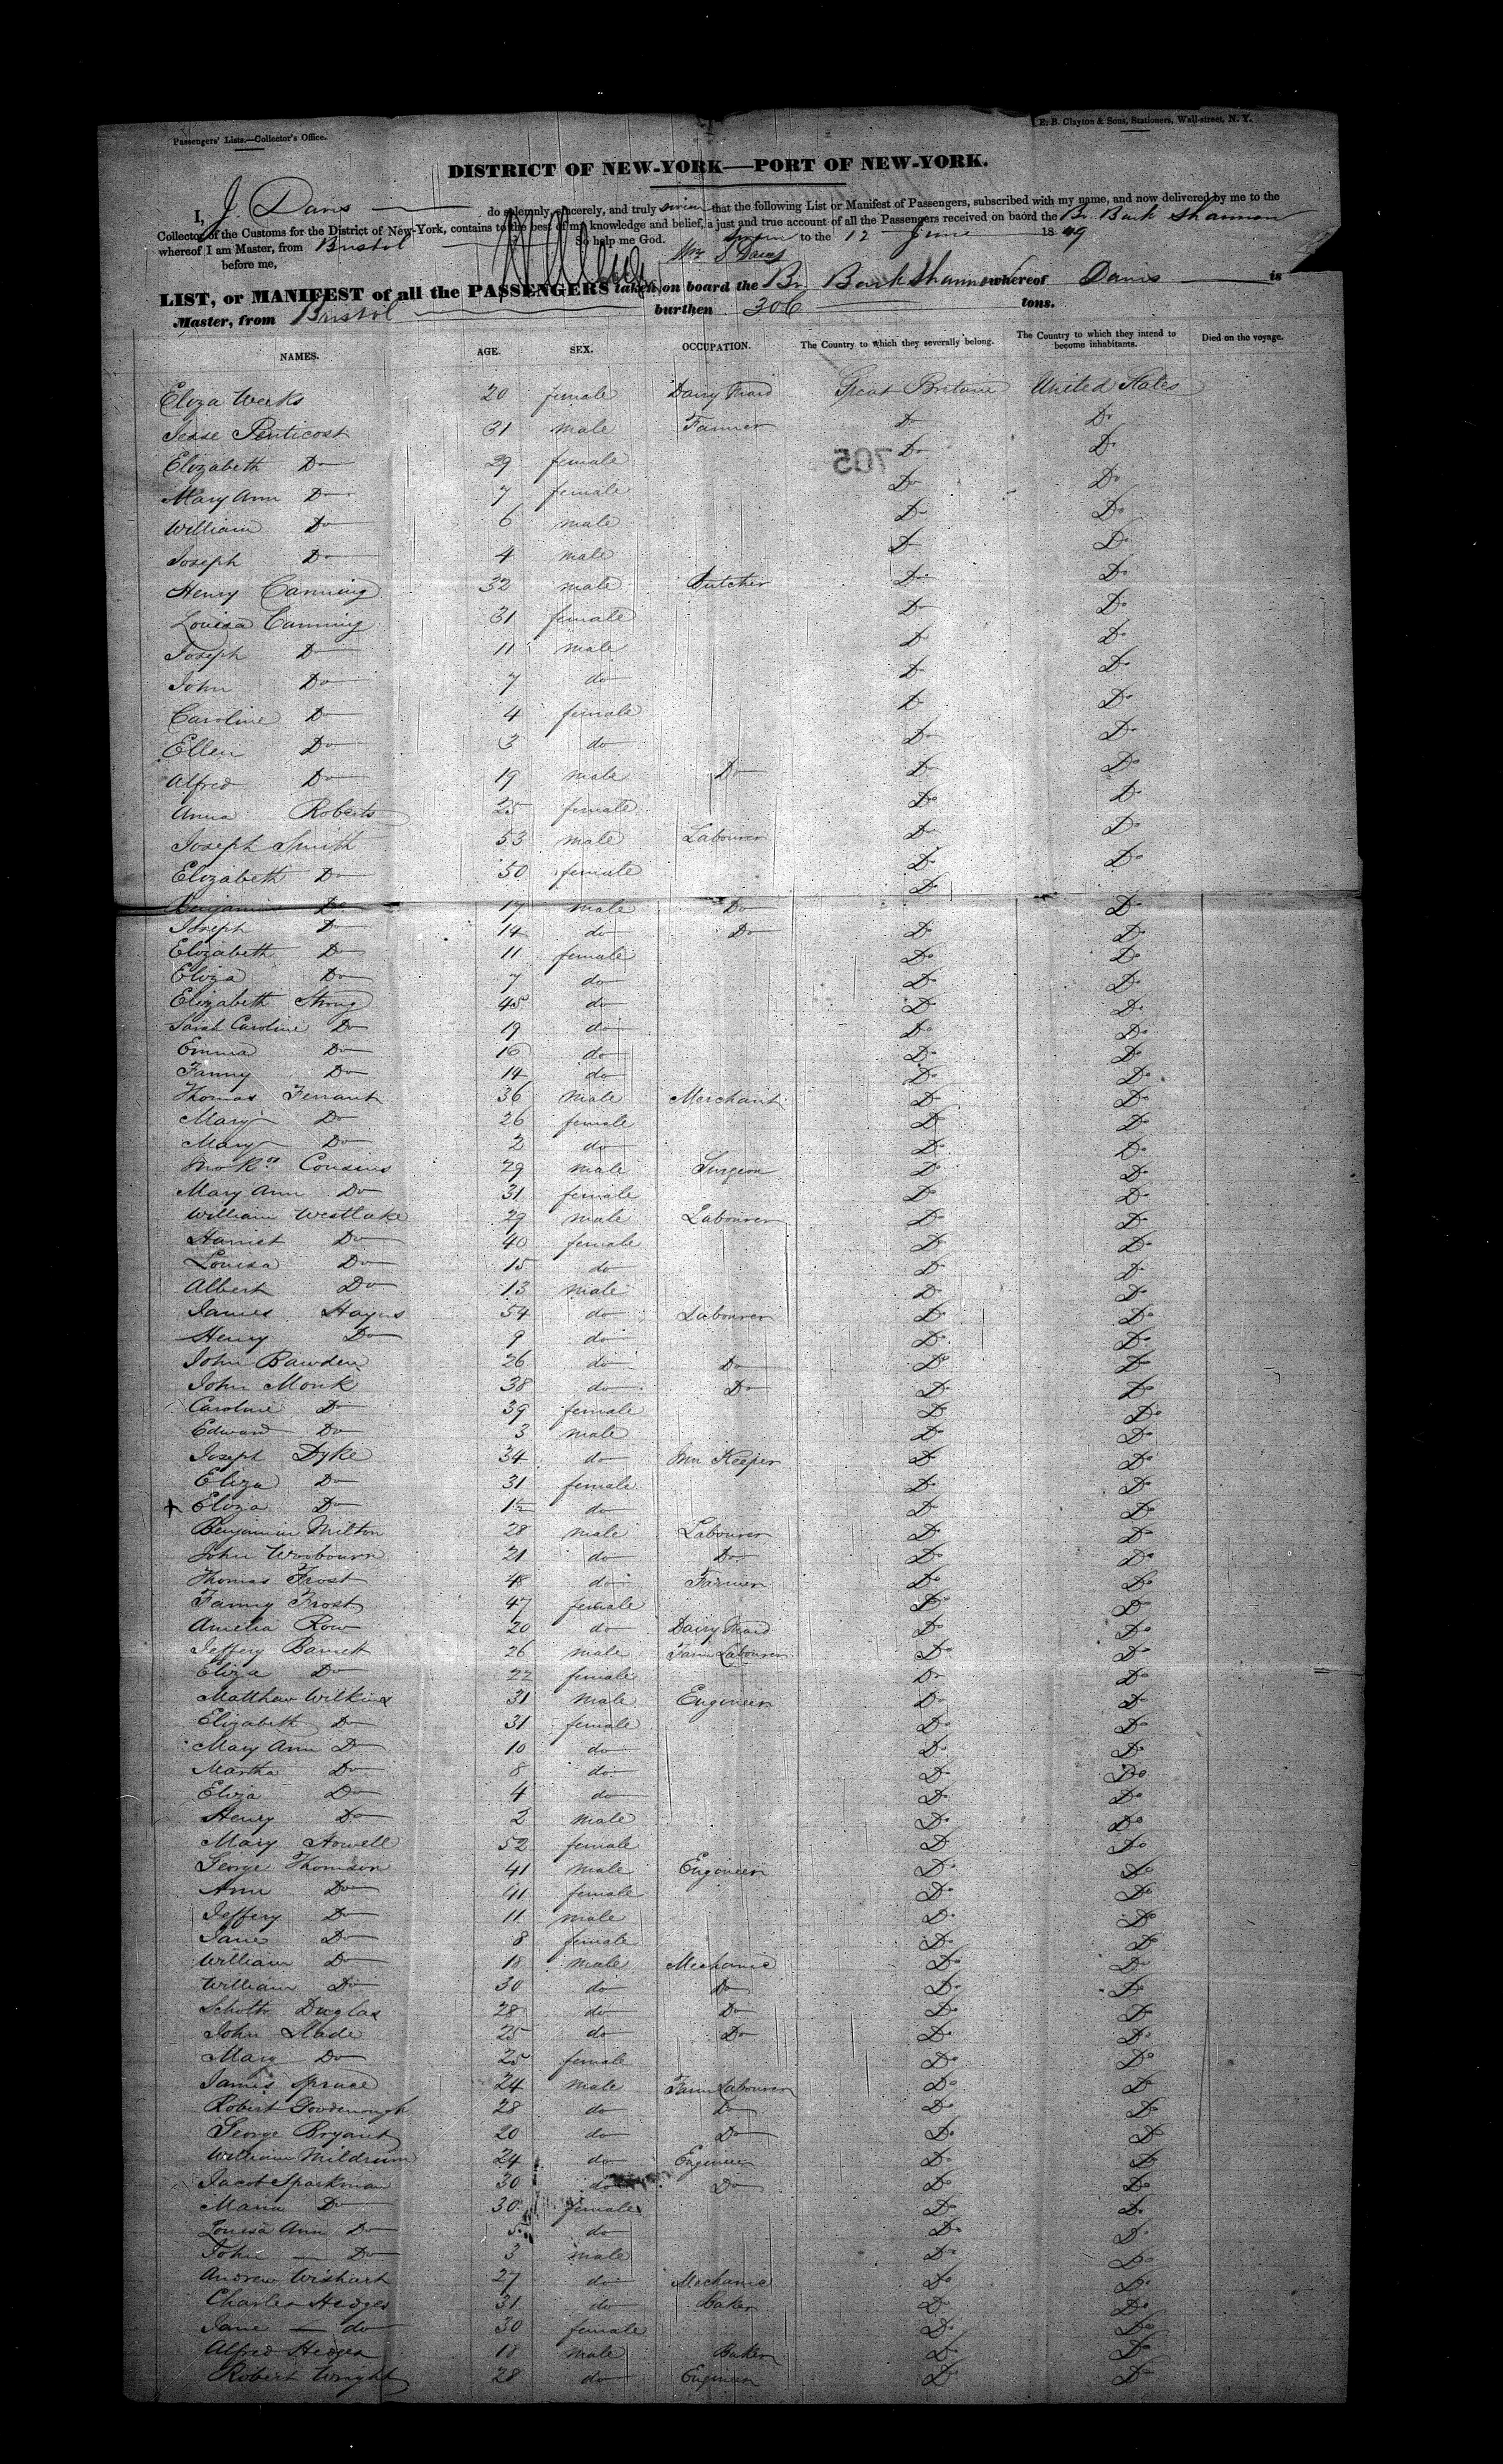 Passengers' Lists.—Collector's Office.
E. B. Clayton & Sons, Stationers, Wall-street, N. Y.
DISTRICT OF NEW-YORK—PORT OF NEW-YORK.
I, J. Davis do solemnly, sincerely, and truly swear that the following List or Manifest of Passengers, subscribed with my name, and now delivered by me to the
Collector of the Customs for the District of New-York, contains to the best of my knowledge and belief, a just and true account of all the Passengers received on baord the Br. Bark Shannon
whereof I am Master, from Bristol So help me God.
Sworn to the 12 June 1849
before me,
LIST, or MANIFEST of all the PASSENGERS taken on board the Br. Bark Shannon whereof Davis is
Master, from Bristol burthen 306 tons.
NAMES. AGE. SEX. OCCUPATION. The Country to which they severally belong. The Country to which they intend to become inhabitants. Died on the voyage.
Eliza Weeks 20 female Dairy Maid Great Britain United States
705
Jesse Penticost 31 male Farmer Do Do
Elizabeth Do 29 female Do Do
Mary Ann Do 7 female Do Do
William Do 6 male Do Do
Joseph Do 4 male Do Do
Henry Canning 32 male Butcher Do Do
Louisa Canning 31 female Do Do
Joseph Do 11 male Do Do
John Do 7 do Do Do
Caroline Do 4 female Do Do
Ellen Do 3 do Do Do
Alfred Do 19 male Do Do Do
Anna Roberts 25 female Do Do
Joseph Smith 53 male Labourer Do Do
Elizabeth Do 50 female Do Do
Benjamin Do 17 male Do Do Do
Joseph Do 14 do Do Do Do
Elizabeth Do 11 female Do Do
Eliza Do 7 do Do Do
Elizabeth Strong 45 do Do Do
Sarah Caroline Do 19 do Do Do
Emma Do 16 do Do Do
Fanny Do 14 do Do Do
Thomas Ferrant 36 male Merchant Do Do
Mary Do 26 female Do Do
Mary Do 2 do Do Do
Cousins 29 male Surgeon Do Do
Mary Ann Do 31 female Do Do
William Westlake 29 male Labourer Do Do
Harriet Do 40 female Do Do
Louisa Do 15 do Do Do
Albert Do 13 male Do Do
James Hayes 54 do Labourer Do Do
Henry Do 9 do Do Do
John Bawden 26 do Do Do Do
John Monk 38 do Do Do Do
Caroline Do 39 female Do Do
Edward Do 3 male Do Do
Joseph Dyke 34 do Inn Keeper Do Do
Eliza Do 31 female Do Do
+ Eliza Do do Do Do
Benjamin Milton 28 male Labourer Do Do
John Woobourn 21 do Do Do Do
Thomas Frost 48 do Farmer Do Do
Fanny Frost 47 female Do Do
Amelia Row 20 do Dairy Maid Do Do
Jeffery Barrett 26 male Farm Labourer Do Do
Eliza Do 22 female Do Do
Matthew Wilkins 31 male Engineer Do Do
Elizabeth Do 31 female Do Do
Mary Ann Do 10 do Do Do
Martha Do 8 do Do Do
Eliza Do 4 do Do Do
Henry Do 2 male Do Do
Mary Howell 52 female Do Do
George Thomson 41 male Engineer Do Do
Ann Do 41 female Do Do
Jeffery Do 11 male Do Do
Jane Do 8 female Do Do
William Do 18 male Mechanic Do Do
William Do 30 do Do Do Do
Scholto Duglas 28 do Do Do Do
John Slade 25 do Do Do Do
Mary Do 25 female Do Do
James Spruce 24 male Farm Labourer Do Do
Robert Goodenough 28 do Do Do Do
George Bryant 20 do Do Do Do
William Mildrum 24 do Engineer Do Do
Jacob Sparkman 30 do Do Do Do
Maria Do 30 female Do Do
Louisa Ann Do 5 do Do Do
John Do 3 male Do Do
Andrew Wishart 27 do Mechanic Do Do
Charles Hedges 31 do Baker Do Do
Jane do 30 female Do Do
Alfred Hedges 18 male Baker Do Do
Robert Wright 28 do Engineer Do Do